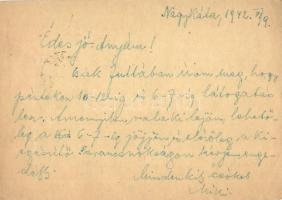 Nagykáta, 1942. IV/9.
Édes jó Anyám!
Csak futtában írom meg, hogy
pénteken 10-12-ig és 6-7-ig látogatás
lesz. Amennyiben valaki eljön, lehető-
leg a 6-7-ig jöjjön és előzőleg a ki-
egészítő Parancsnokságon kérjen enge-
délyt
Mindenkit csókol
Miki